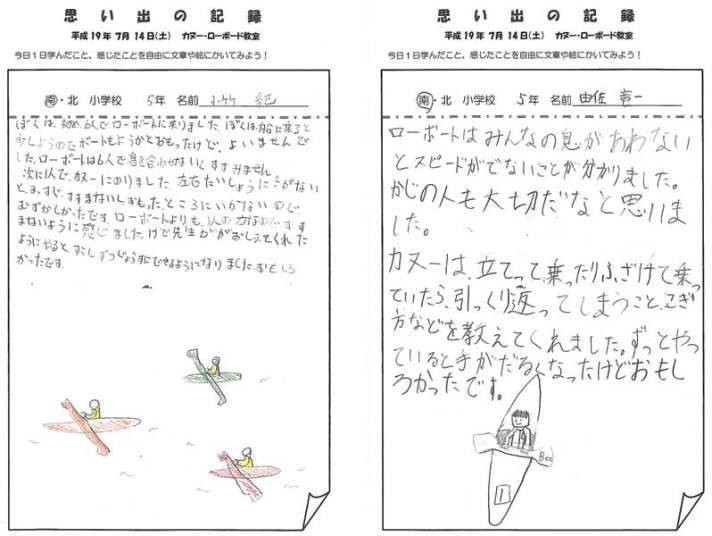 思い出の記録
平成19年 7月14日(土) カヌー・ローボード教室
今日1日学んだこと、感じたことを自由に文章や絵にかいてみよう!
南・北 小学校 5年 名前
ぼくは、初め、6人でローボートに乗りました。ぼくは船に乗ると
少しようのでボートもようかとおもったけど、よいませんで
した。ローボートは6人で息を合わせないとすすみません
次に1人で、カヌーにのりました。左右たいしょうにこがない
とまっすぐすすまないしおもったところにいかないので、
むずかしかったです。ローボートよりも、1人の力なのですす
まないように感じました。けど先生ががおしえてくれた
ようにやると、すこしずつじょう船できるようになりました。おもしろ
かったです。
思い出の記録
平成19年 7月14日(土) カヌー・ローボード教室
今日1日学んだこと、感じたことを自由に文章や絵にかいてみよう!
南・北 小学校 5年 名前 由佐 竜一
ローボートはみんなの息があわない
とスピードがでないことが分かりました。
かじの人も大切だなと思いま
した。
カヌーは、立てって、乗ったりふざけて乗っ
ていたら、引っくり返ってしまうこと、こぎ
方などを教えてくれました。ずっとやっ
ていると手がだるくなったけどおもし
ろかったです。
1